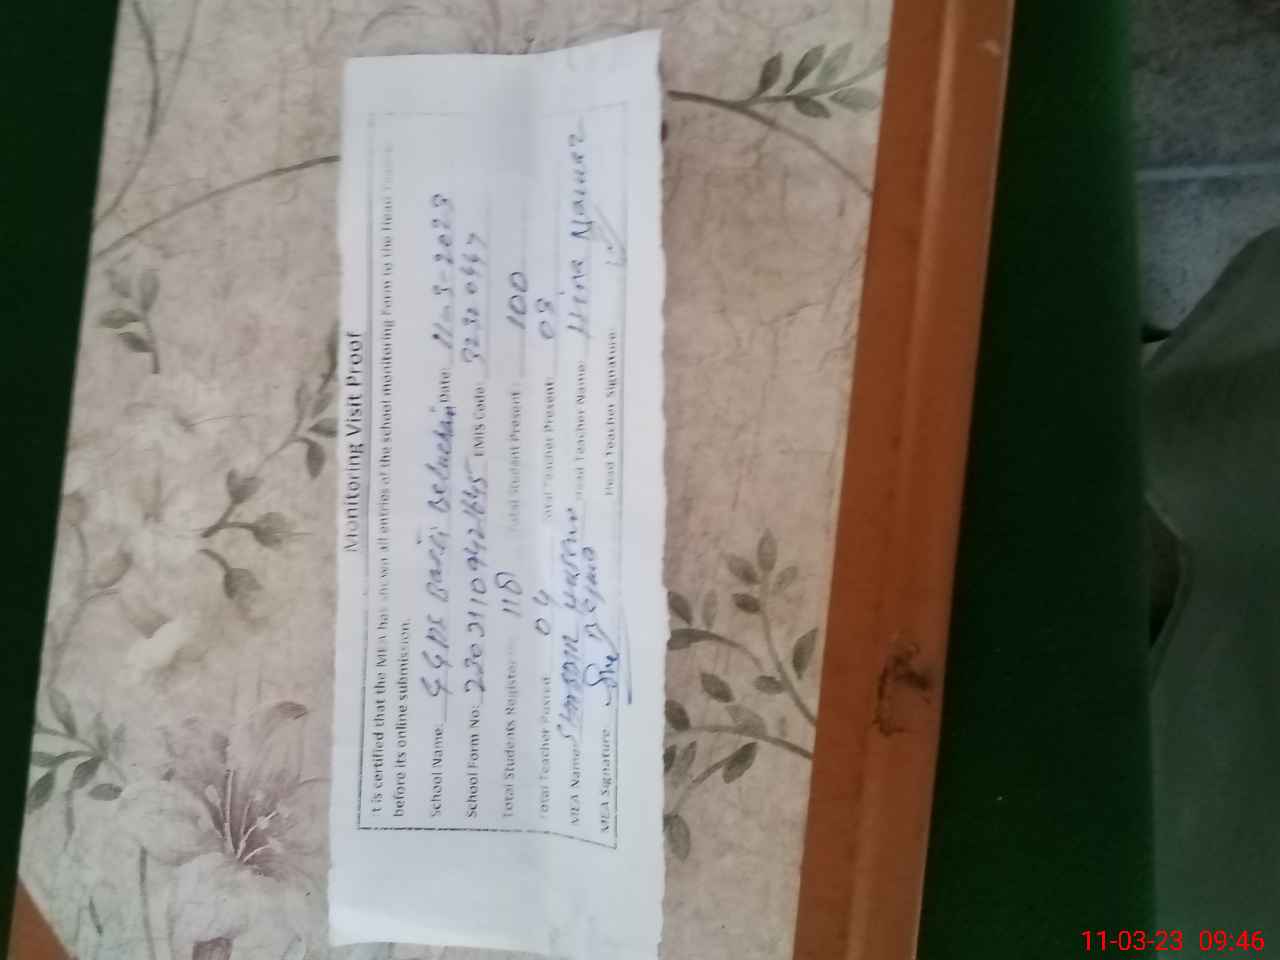 Monitoring Visit Proof
It is certified that the MEA has shown all entries of the school monitoring Form to the Head Teacher
before its online submission.
School Name: GGPS Basti Belochan Date: 11-3-2023
School Form No: EMIS Code: 32320447
Total Students Registered 118 Total Student Present: 100
Total Teacher Posted 04 Total Teacher Present: 03
MEA Name Head Teacher Name: Hina
MEA Signature Head Teacher Signature:
11-03-23 09:46